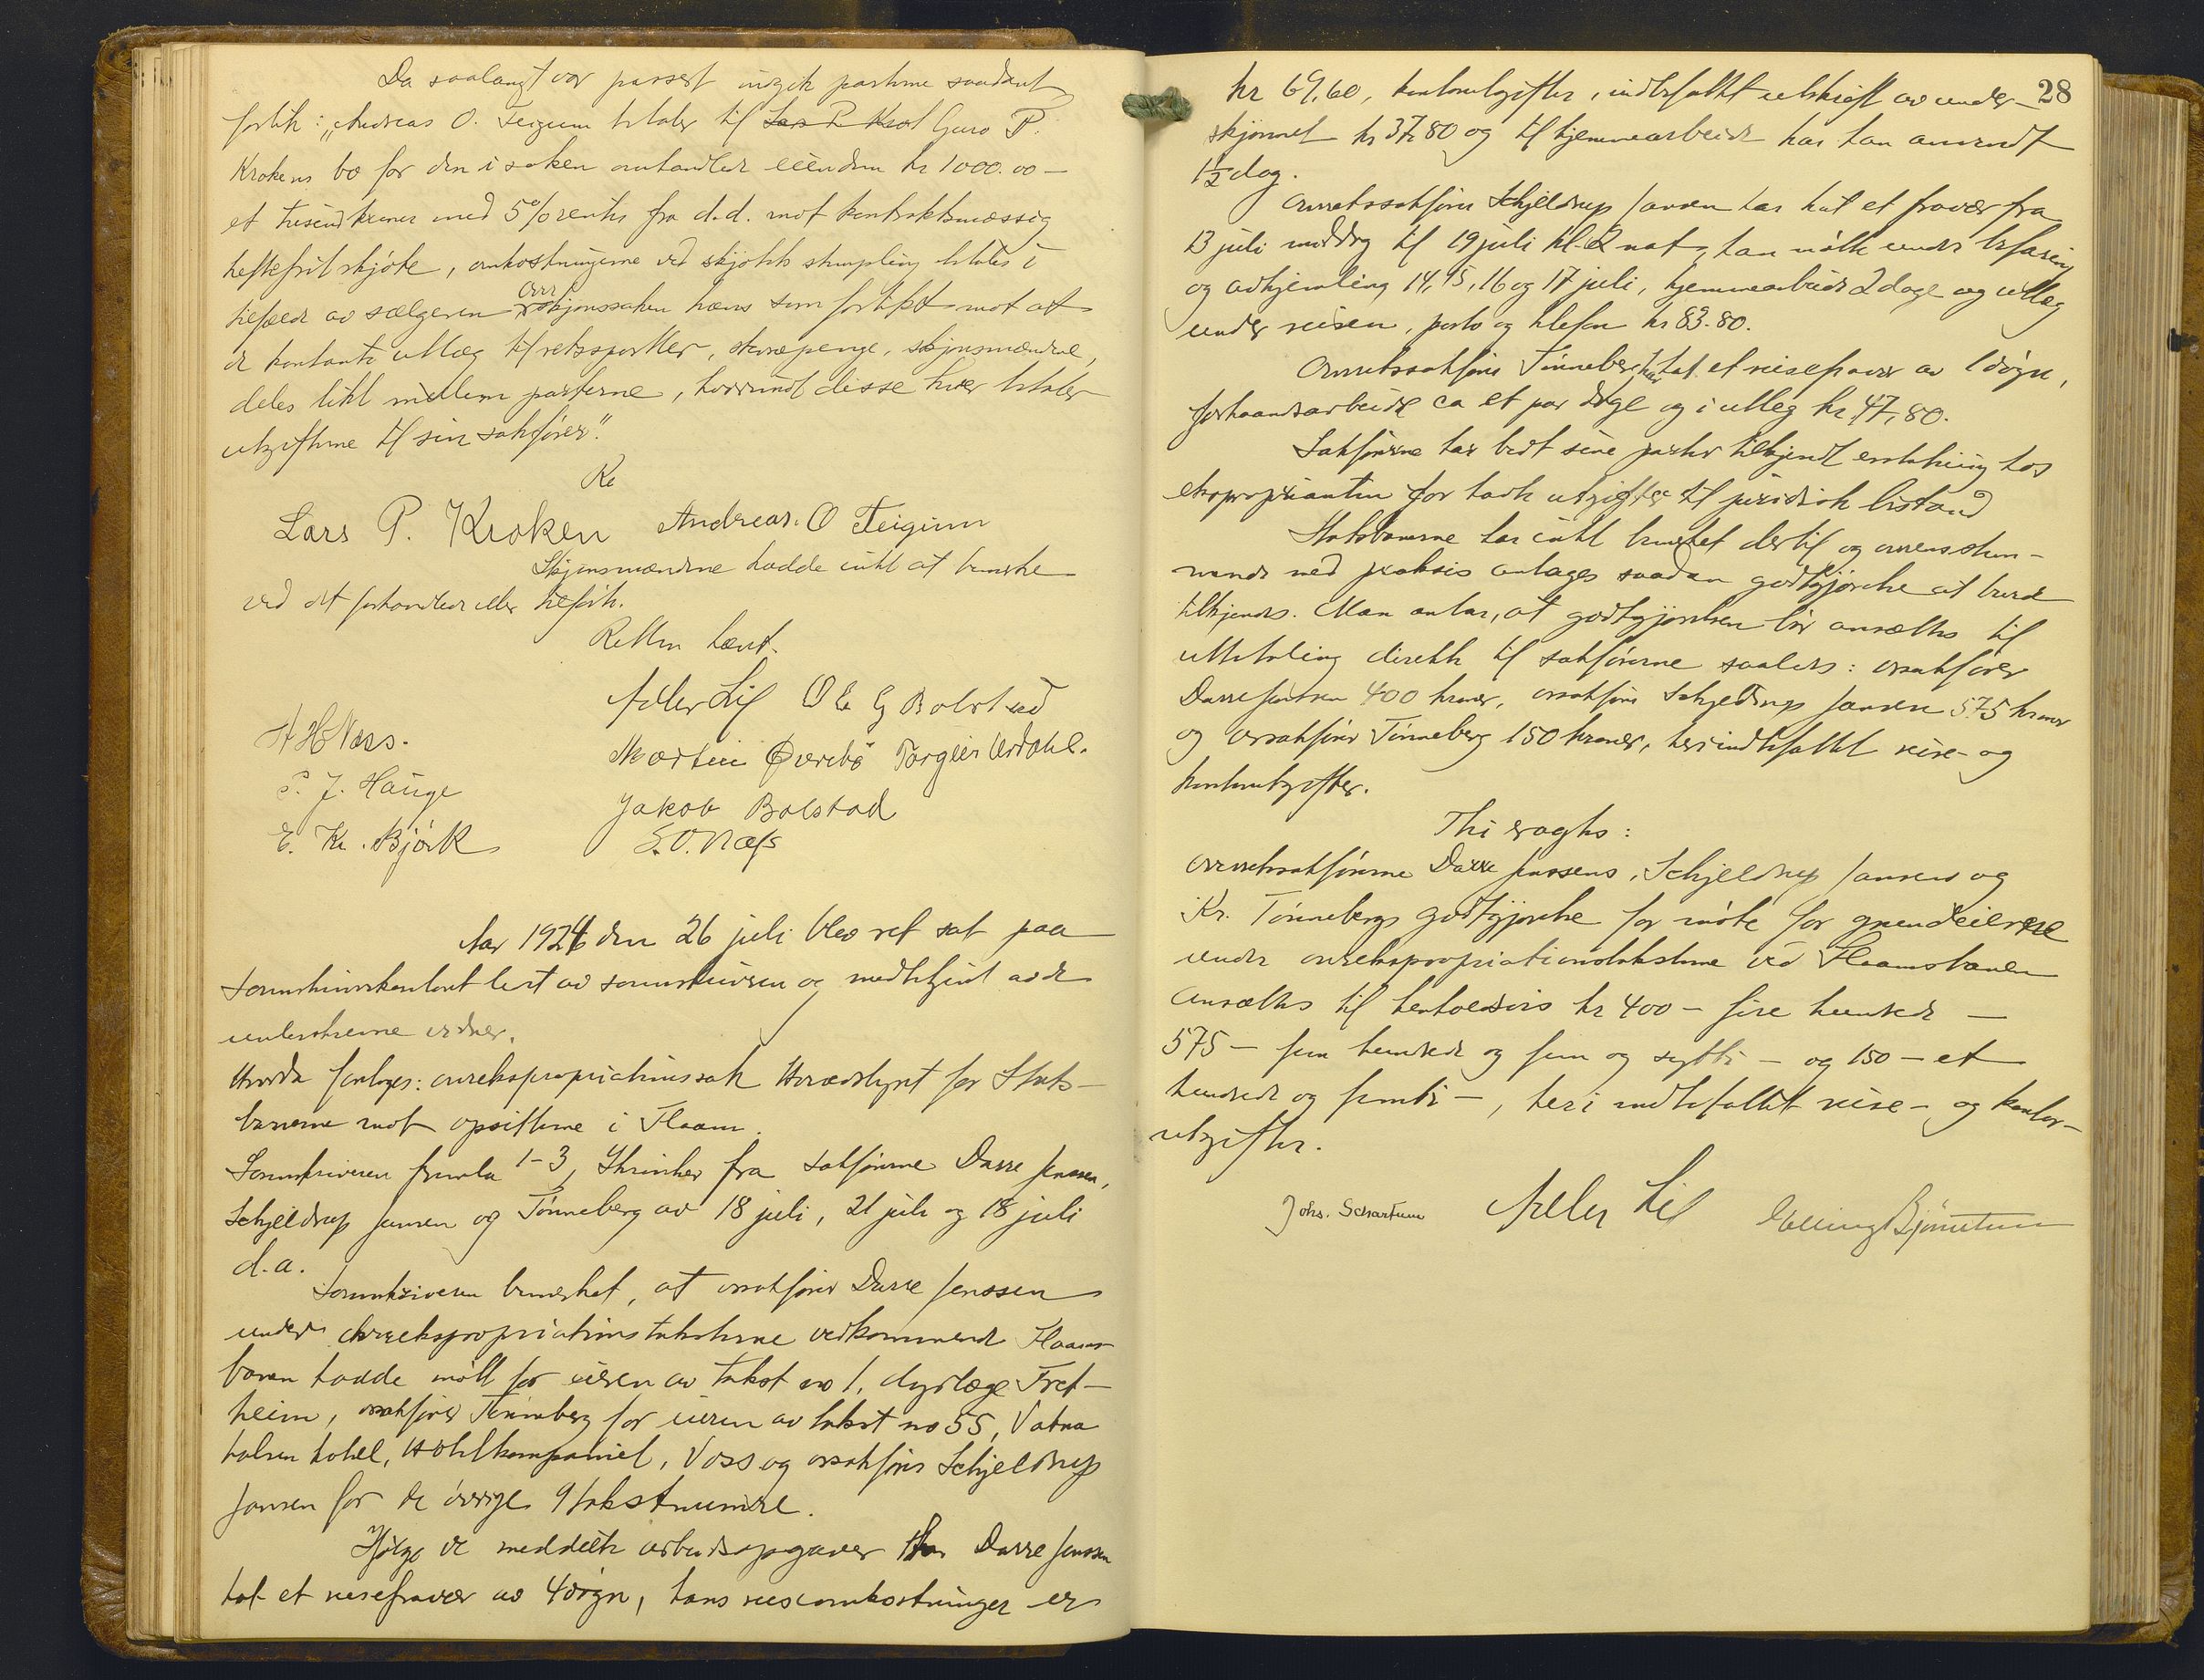 Da saalangt var passert indgik parterne saadant
forlik: "Andreas O. Teigum betaler til Lars P. Krok Guro P.
Krokens bo for den i saken omhandlede eiendom kr 1000.00 –
et tusind kroner med 5% rente fra d.d. mot kontraktsmæssig
heftefrit skjøte, omkostningerne ved skjøtets stempling betales i
tilfælde av sælgeren. Overskjønssaken hæves som forlikt mot at
de kontante utlæg til retssportler, skrivepenge, skjønsmændene,
deles likt mellem parterne, hvorimot disse hver betaler
utgifterne til sin sakfører."
Re
Lars P. Kroken Andreas. O Teigum
Skjønsmændene hadde intet at bemerke
ved det forhandlede eller tilførte.
Retten hævet.
Atler Lil Ole G Bolstad
A H Næss. Martin Øverbø Torgeir Urdahl.
P. J. Hauge Jakob Bolstad
E. Kr. Bjørk S. O. Næss
Aar 1924 den 26 juli blev ret sat paa
sorenskriverkontoret ledet av sorenskriveren og medbetjent av de
underskrevne vidner.
Hvorda foretoges: overekspropriationssak Hovedstyret for Stats-
banerne mot opsitterne i Flaam.
Sorenskriveren fremla 1-3, Skrivelser fra sakførerne Darre Jenssen,
Schjeldrup Jansen og Tønneberg av 18 juli, 21 juli og 18 juli
d.a.
Sorenskriveren bemerket, at orsakfører Darre Jenssen
under overekspropriationstaksterne vedkommende Flaams-
banen hadde møtt for eieren av takst no 1, dyrlæge Fret-
heim, orsakfører Tønneberg for eieren av takst no 55, Vatna
halsen hotel, Hotelkompaniet, Voss og orsakfører Schjeldrup
Jansen for de øvrige 9 takstnumre.
Ifølge de meddelte arbeidsopgaver har Darre Jenssen
hat et reisefravær av 4 døgn, hans reiseomkostninger er
28
kr 69,60, kontorutgifter, indbefattet utskrift av under-
skjønnet kr 37.80 og til hjemmearbeide har han anvendt
1½ dag.
Overretssakfører Schjeldrup Jansen har hat et fravær fra
13 juli middag til 19 juli kl. 2 nat, han møtte under befaring
og avhjemling 14, 15, 16 og 17 juli, hjemmearbeide 2 dage og utlæg
under reisen, porto og telefon kr 83.80.
Overretssakfører Tønneberg har hat et reisefravær av 1 døgn,
forhaandsarbeide ca et par dage og i utlæg kr 47,80.
Sakførerne har bedt sine parter tilkjendt erstatning hos
ekspropriantin for havte utgifter til juridisk bistand
Statsbanerne har intet bemerket dertil og overensstem-
mende med praksis antages saadan godtgjørelse at burde
tilkjendes. Man antar, at godtgjørelsen bør ansættes til
utbetaling direkte til sakførerne saaledes: orsakfører
Darre Jenssen 400 kroner, orsakfører Schjeldrup Jansen 575 kroner
og orsakfører Tønneberg 150 kroner, heri indbefattet reise- og
kontorutgifter.
Thi eragtes:
overretssakførerne Darre Jenssens, Schjeldrup Jansens og
Kr. Tønnebergs godtgjørelse for møte for grundeierne
under overekspropriationstaksterne ved Flaamsbanen
ansættes til henholdsvis kr 400 – fire hundrede –
575 – fem hundrede og fem og sytti – og 150 – et
hundrede og femti –, heri indbefattet reise- og kontor-
utgifter.
Johs. Schartum Atler Lil Elling Bjørnetun